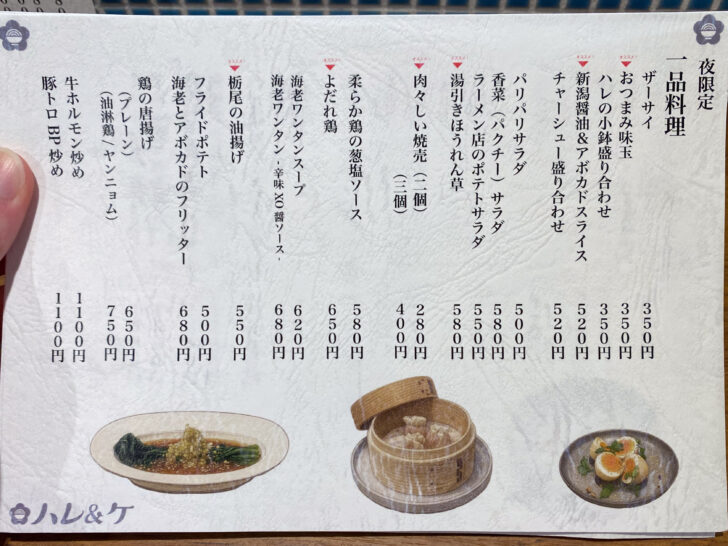 夜限定
一品料理
ザーサイ 350円
おつまみ味玉 350円
ハレの小鉢盛り合わせ 350円
新潟醤油&アボカドスライス 520円
チャーシュー盛り合わせ 520円
パリパリサラダ 500円
香菜(パクチー)サラダ 580円
ラーメン店のポテトサラダ 550円
湯引きほうれん草 580円
肉々しい焼売(二個) 280円
(三個) 400円
柔らか鶏の葱塩ソース 580円
よだれ鶏 650円
海老ワンタンスープ 620円
海老ワンタン -辛味XO醤ソース- 680円
栃尾の油揚げ 550円
フライドポテト 500円
海老とアボカドのフリッター 680円
鶏の唐揚げ
(プレーン) 650円
(油淋鶏/ヤンニョム) 750円
牛ホルモン炒め 1100円
豚トロBP炒め 1100円
ハレ&ケ